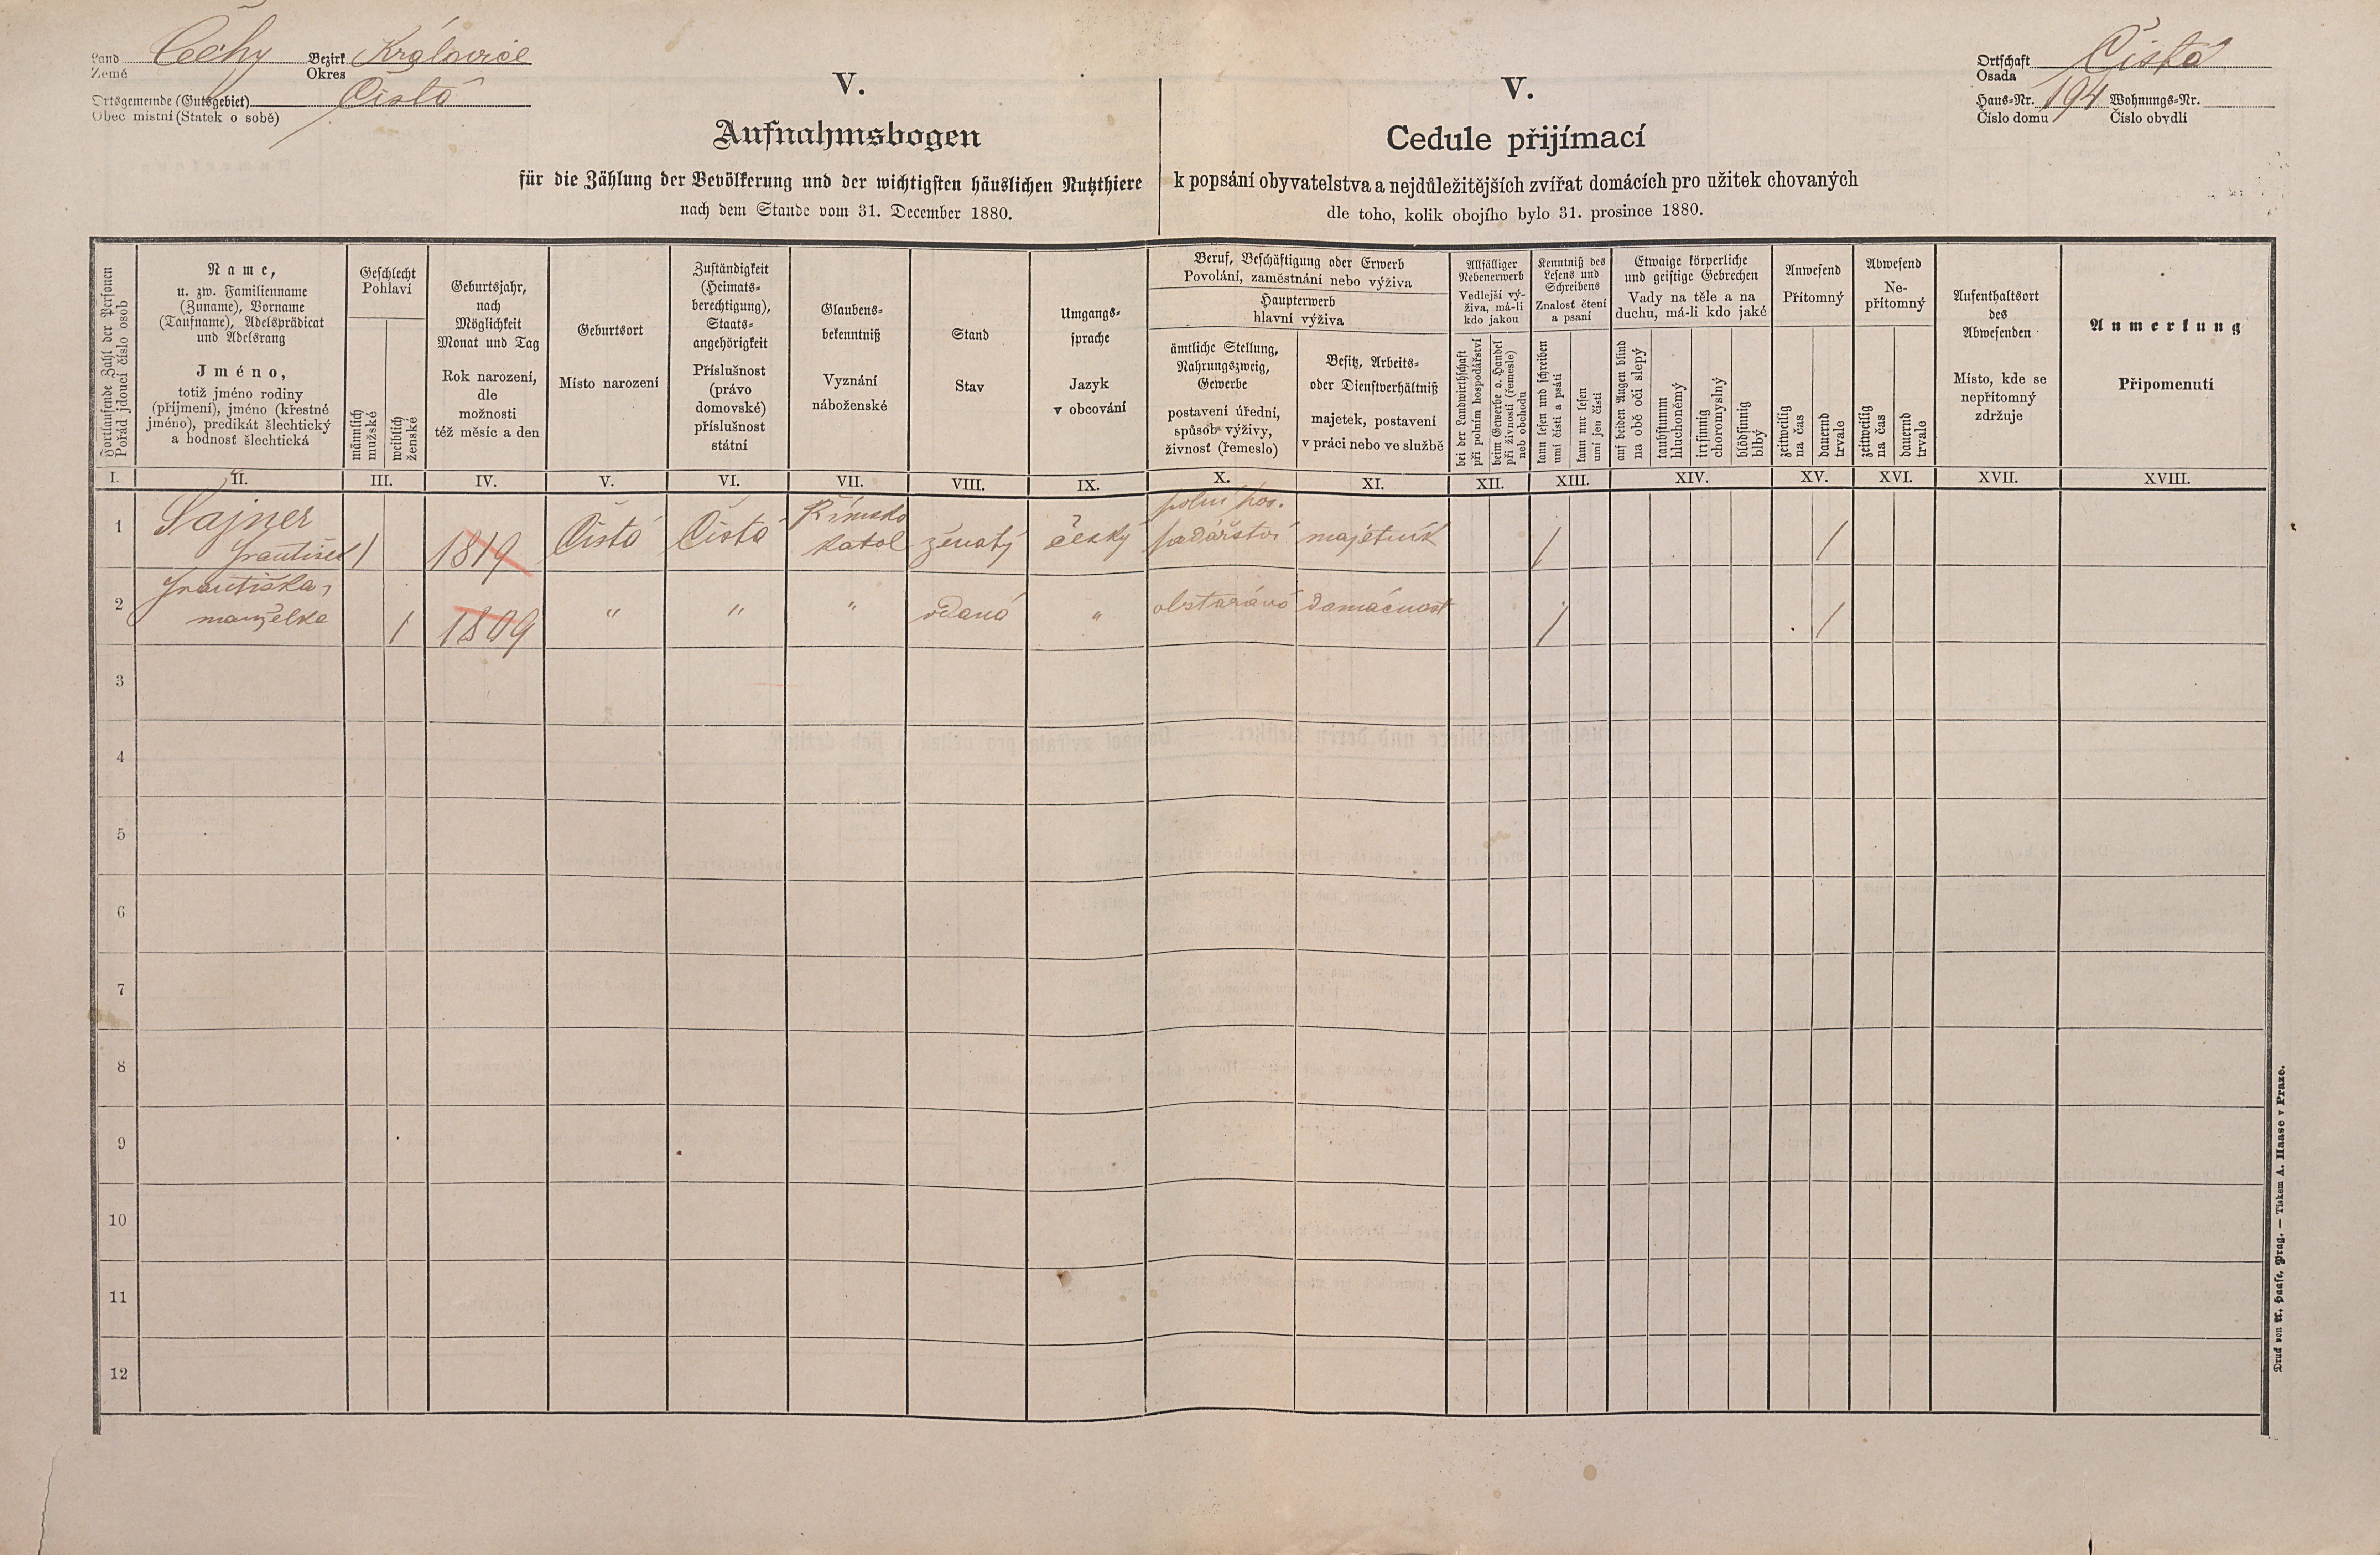 Land Země Čechy Bezirk Okres Královice
Ortsgemeinde (Gutsgebiet) Čistá
Obec místní (Statek o sobě)
V.
Aufnahmsbogen
für die Zählung der Bevölkerung und der wichtigsten häuslichen Nutzthiere
nach dem Stande vom 31. December 1880.
V.
Cedule přijímací
k popsání obyvatelstva a nejdůležitějších zvířat domácích pro užitek chovaných
dle toho, kolik obojího bylo 31. prosince 1880.
Ortschaft Osada Čistá
Haus-Nr. 194 Wohnungs-Nr.
Číslo domu Číslo obydlí
Fortlaufende Zahl der Personen
Pořád jdoucí číslo osob
Name,
u. zw. Familienname
(Zuname), Vorname
(Taufname), Adelsprädicat
und Adelsrang
Jméno,
totiž jméno rodiny
(příjmení), jméno (křestné
jméno), predikát šlechtický
a hodnosť šlechtická
Geschlecht
Pohlaví
männlich
mužské
weiblich
ženské
Geburtsjahr,
nach
Möglichkeit
Monat und Tag
Rok narození,
dle
možnosti
též měsíc a den
Geburtsort
Místo narození
Zuständigkeit
(Heimats-
berechtigung),
Staats-
angehörigkeit
Příslušnost
(právo
domovské)
příslušnost
státní
Glaubens-
bekenntniß
Vyznání
náboženské
Stand
Stav
Umgangs-
sprache
Jazyk
v obcování
Beruf, Beschäftigung oder Erwerb
Povolání, zaměstnání nebo výživa
Haupterwerb
hlavní výživa
ämtliche Stellung,
Nahrungszweig,
Gewerbe
postavení úřední,
spůsob výživy,
živnosť (řemeslo)
Besitz, Arbeits-
oder Dienstverhältniß
majetek, postavení
v práci nebo ve službě
Allfälliger
Nebenerwerb
Vedlejší vý-
živa, má-li
kdo jakou
bei der Landwirthschaft
při polním hospodářství
beim Gewerbe o. Handel
při živnosti (řemesle)
neb obchodu
Kenntniß des
Lesens und
Schreibens
Znalosť čtení
a psaní
kann lesen und schreiben
umí čísti a psáti
kann nur lesen
umí jen čísti
Etwaige körperliche
und geistige Gebrechen
Vady na těle a na
duchu, má-li kdo jaké
auf beiden Augen blind
na obě oči slepý
taubstumm
hluchoněmý
irrsinnig
choromyslný
blödsinnig
blbý
Anwesend
Přítomný
zeitweilig
na čas
dauernd
trvale
Abwesend
Ne-
přítomný
zeitweilig
na čas
dauernd
trvale
Aufenthaltsort
des
Abwesenden
Místo, kde se
nepřítomný
zdržuje
Anmerkung
Připomenutí
I. II. III. IV. V. VI. VII. VIII. IX. X. XI. XII. XIII. XIV. XV. XVI. XVII. XVIII.
1 Sajner Římsko polní hos-
František 1 1819 Čistá Čistá katol ženatý český podářství majetník / /
2 Františka,
manželka 1 1809 " " " vdaná " obstarává domácnost / /
3
4
5
6
7
8
9
10
11
12
Druck von A. Haase, Prag. — Tiskem A. Haase v Praze.